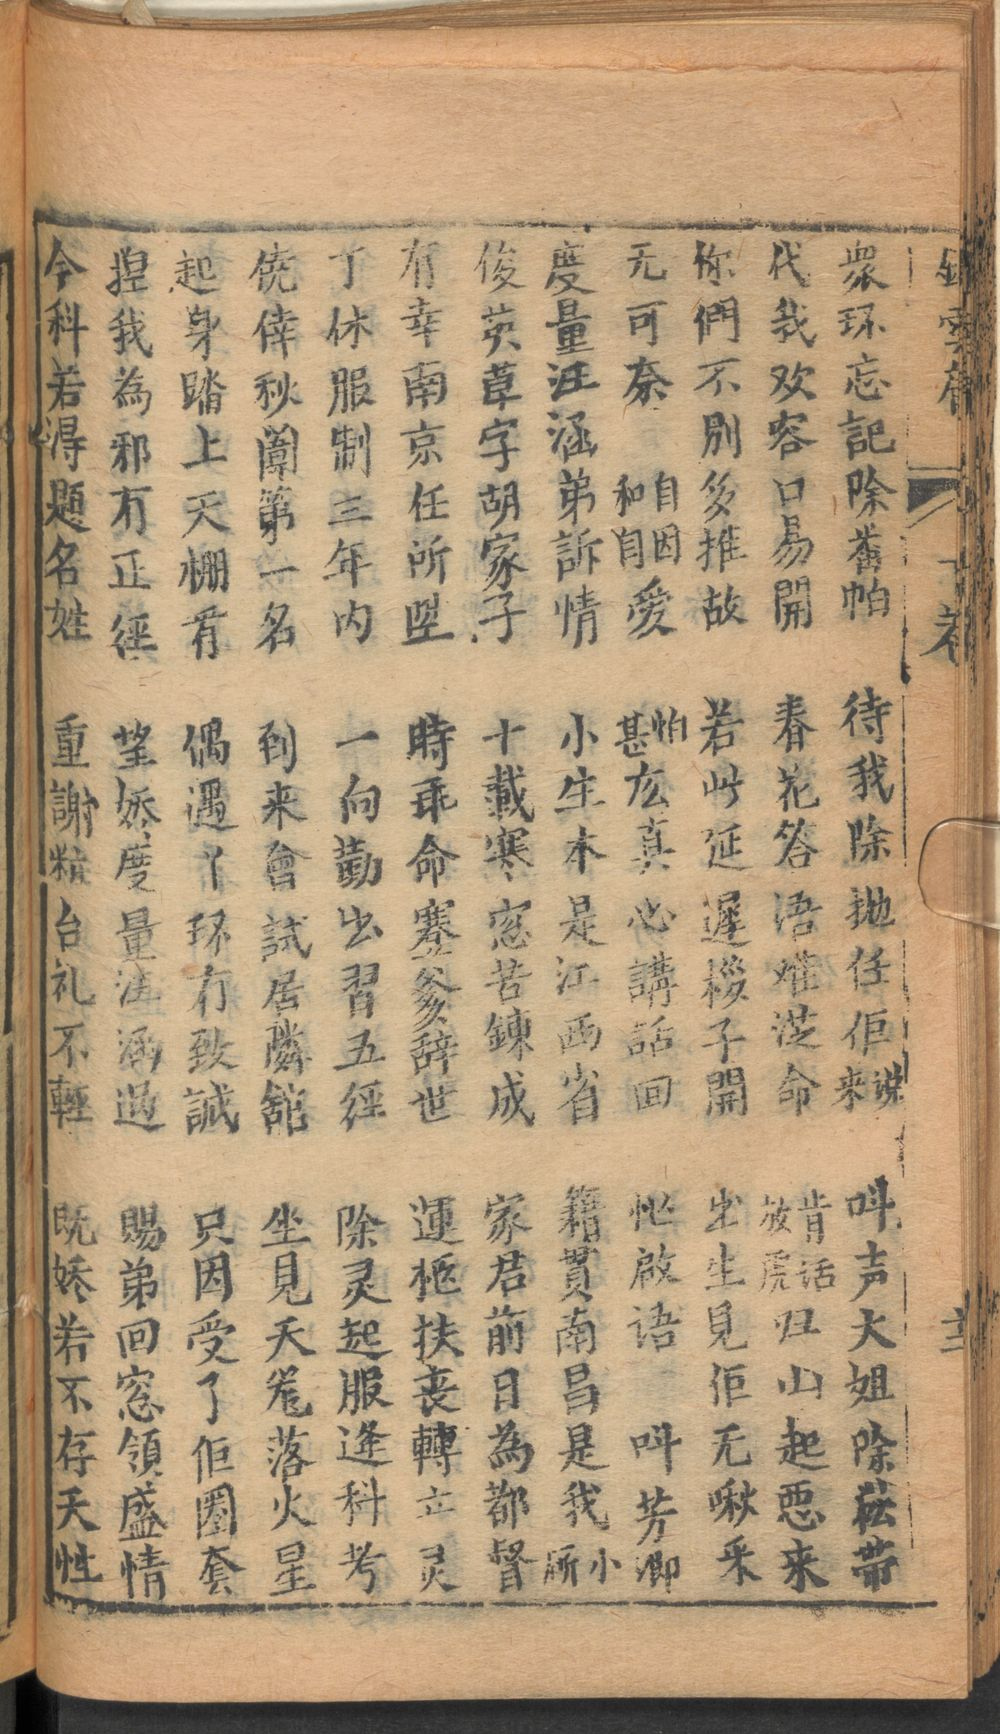 衆环忘記除舊帕 待我除拋任佢説来 呌声大姐除菘帯
代我欢容口易開 春花答语难漟命 放虎肯话归山起悪来
你們不别多推故 若此延遲樱子開 出生見佢无啾采
无可奈 自因和自愛 怕甚広真心講話囬 忙啟语 呌芳卿
度量汪涵弟訴情 小生本是江西省 籍貫南昌是我小所
俊英草字胡家子 十載寒窓苦鍊成 家君前日為都督
有幸南京任所陞 時乖命蹇爹辞世 運柩扶丧轉立灵
丁休服制三年内 一向勤出習五經 除灵起服逢科考
僥倖秋闈第一名 到来會試居隣舘 坐見天窓落火星
起身踏上天棚看 偶遇丫环冇致誠 只因受了佢圈套
揑我為邪冇正徑 望娇度量汪涵過 賜弟回窓領盛情
今科若得題名姓 重謝粧台礼不輕 既娇若不存天性